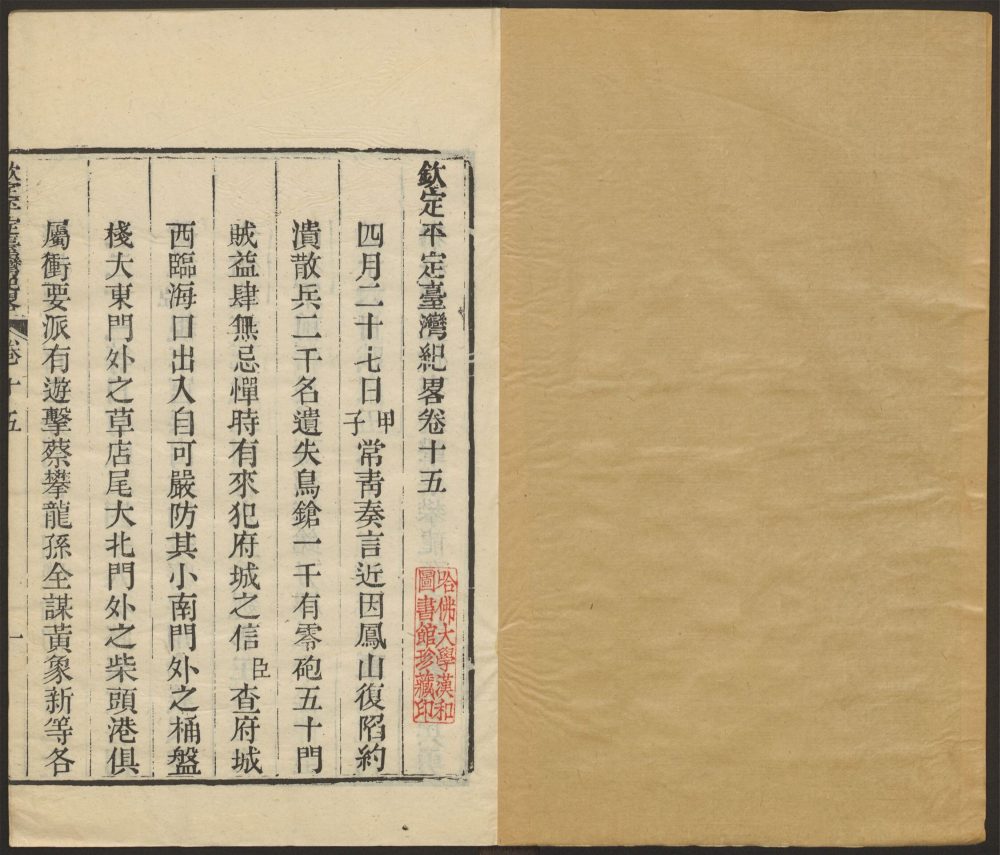 欽定平定臺灣紀畧卷十五
四月二十七日甲子常靑奏言近因鳳山復陷約
潰散兵二千名遺失鳥鎗一千有零砲五十門
賊益肆無忌憚時有來犯府城之信臣查府城
西臨海口出入自可嚴防其小南門外之桶盤
棧大東門外之草店尾大北門外之柴頭港俱
屬衝要派有遊擊蔡攀龍孫全謀黃象新等各
欽定平定臺灣紀畧 卷十五 一
哈佛大學漢和
圖書館珍藏印